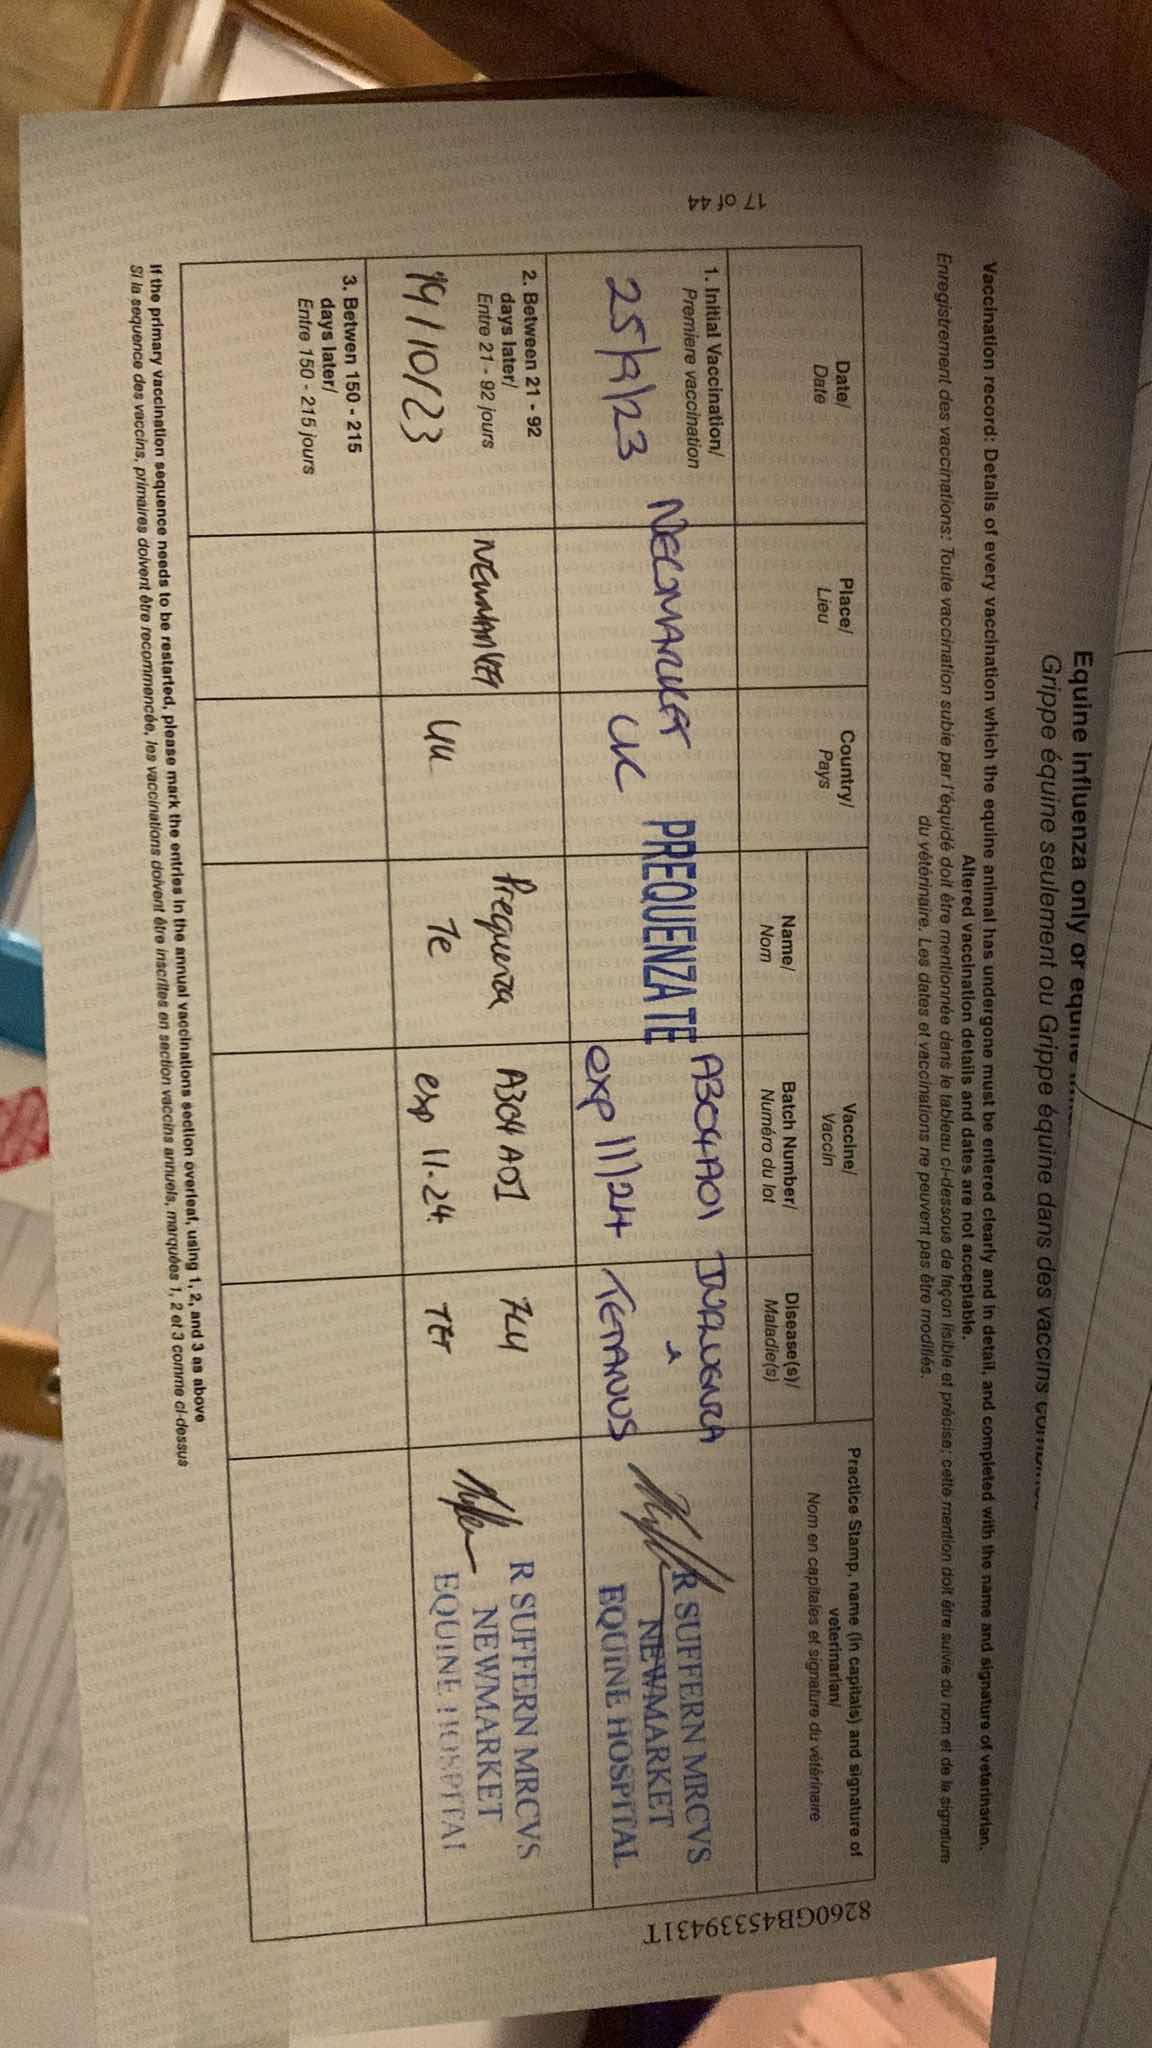 Equine influenza only or equine
Grippe équine seulement ou Grippe équine dans des vaccins
Vaccination record: Details of every vaccination which the equine animal has undergone must be entered clearly and in detail, and completed with the name and signature of veterinarian.
Altered vaccination details and dates are not acceptable.
Enregistrement des vaccinations: Toute vaccination subie par l'équidé doit être mentionnée dans le tableau ci-dessous de façon lisible et précise; cette mention doit être suivie du nom et de la signature
du vétérinaire. Les dates et vaccinations ne peuvent pas être modifiés.
Date/
Date
Place/
Lieu
Country/
Pays
Vaccine/
Vaccin
Name/
Nom
Batch Number/
Numéro du lot
Disease(s)/
Maladie(s)
Practice Stamp, name (in capitals) and signature of
veterinarian/
Nom en capitales et signature du vétérinaire
1. Initial Vaccination/
Premiere vaccination
25/9/23
NEWMARKET
UK
PREQUENZA TE
A304A01
exp 11/24
INFLUENZA
TETANUS
R SUFFERN MRCVS
NEWMARKET
EQUINE HOSPITAL
2. Between 21 - 92
days later/
Entre 21 - 92 jours
19/10/23
NEWMARKET
UK
Prequenza
Te
A304A01
exp 11.24
FLU
TET
R SUFFERN MRCVS
NEWMARKET
EQUINE HOSPITAL
3. Betwen 150 - 215
days later/
Entre 150 - 215 jours
If the primary vaccination sequence needs to be restarted, please mark the entries in the annual vaccinations section overleaf, using 1, 2, and 3 as above
Si la sequence des vaccins, primaires doivent être recommencée, les vaccinations doivent être inscrites en section vaccins annuels, marquées 1, 2 et 3 comme ci-dessus
17 of 44
8260GB45339431T